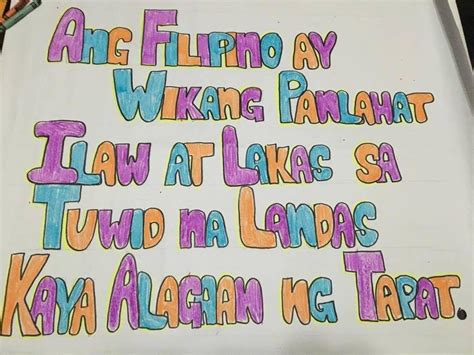 Ang Filipino ay
Wikang Panlahat
Ilaw at Lakas sa
Tuwid na Landas
Kaya Alagaan ng Tapat.